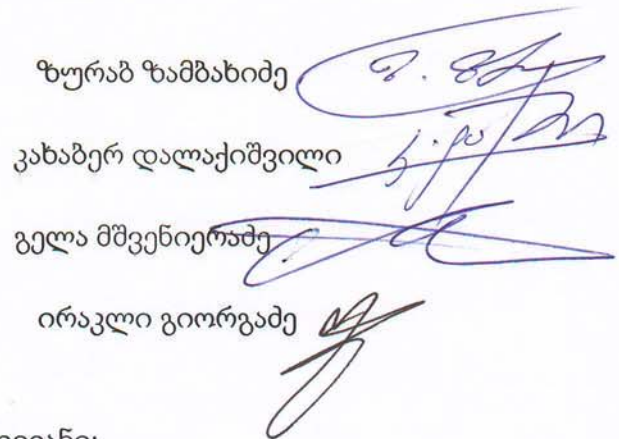 ზურაბ ზამბახიძე
კახაბერ დალაქიშვილი
გელა მშვენიერაძე
ირაკლი გიორგაძე